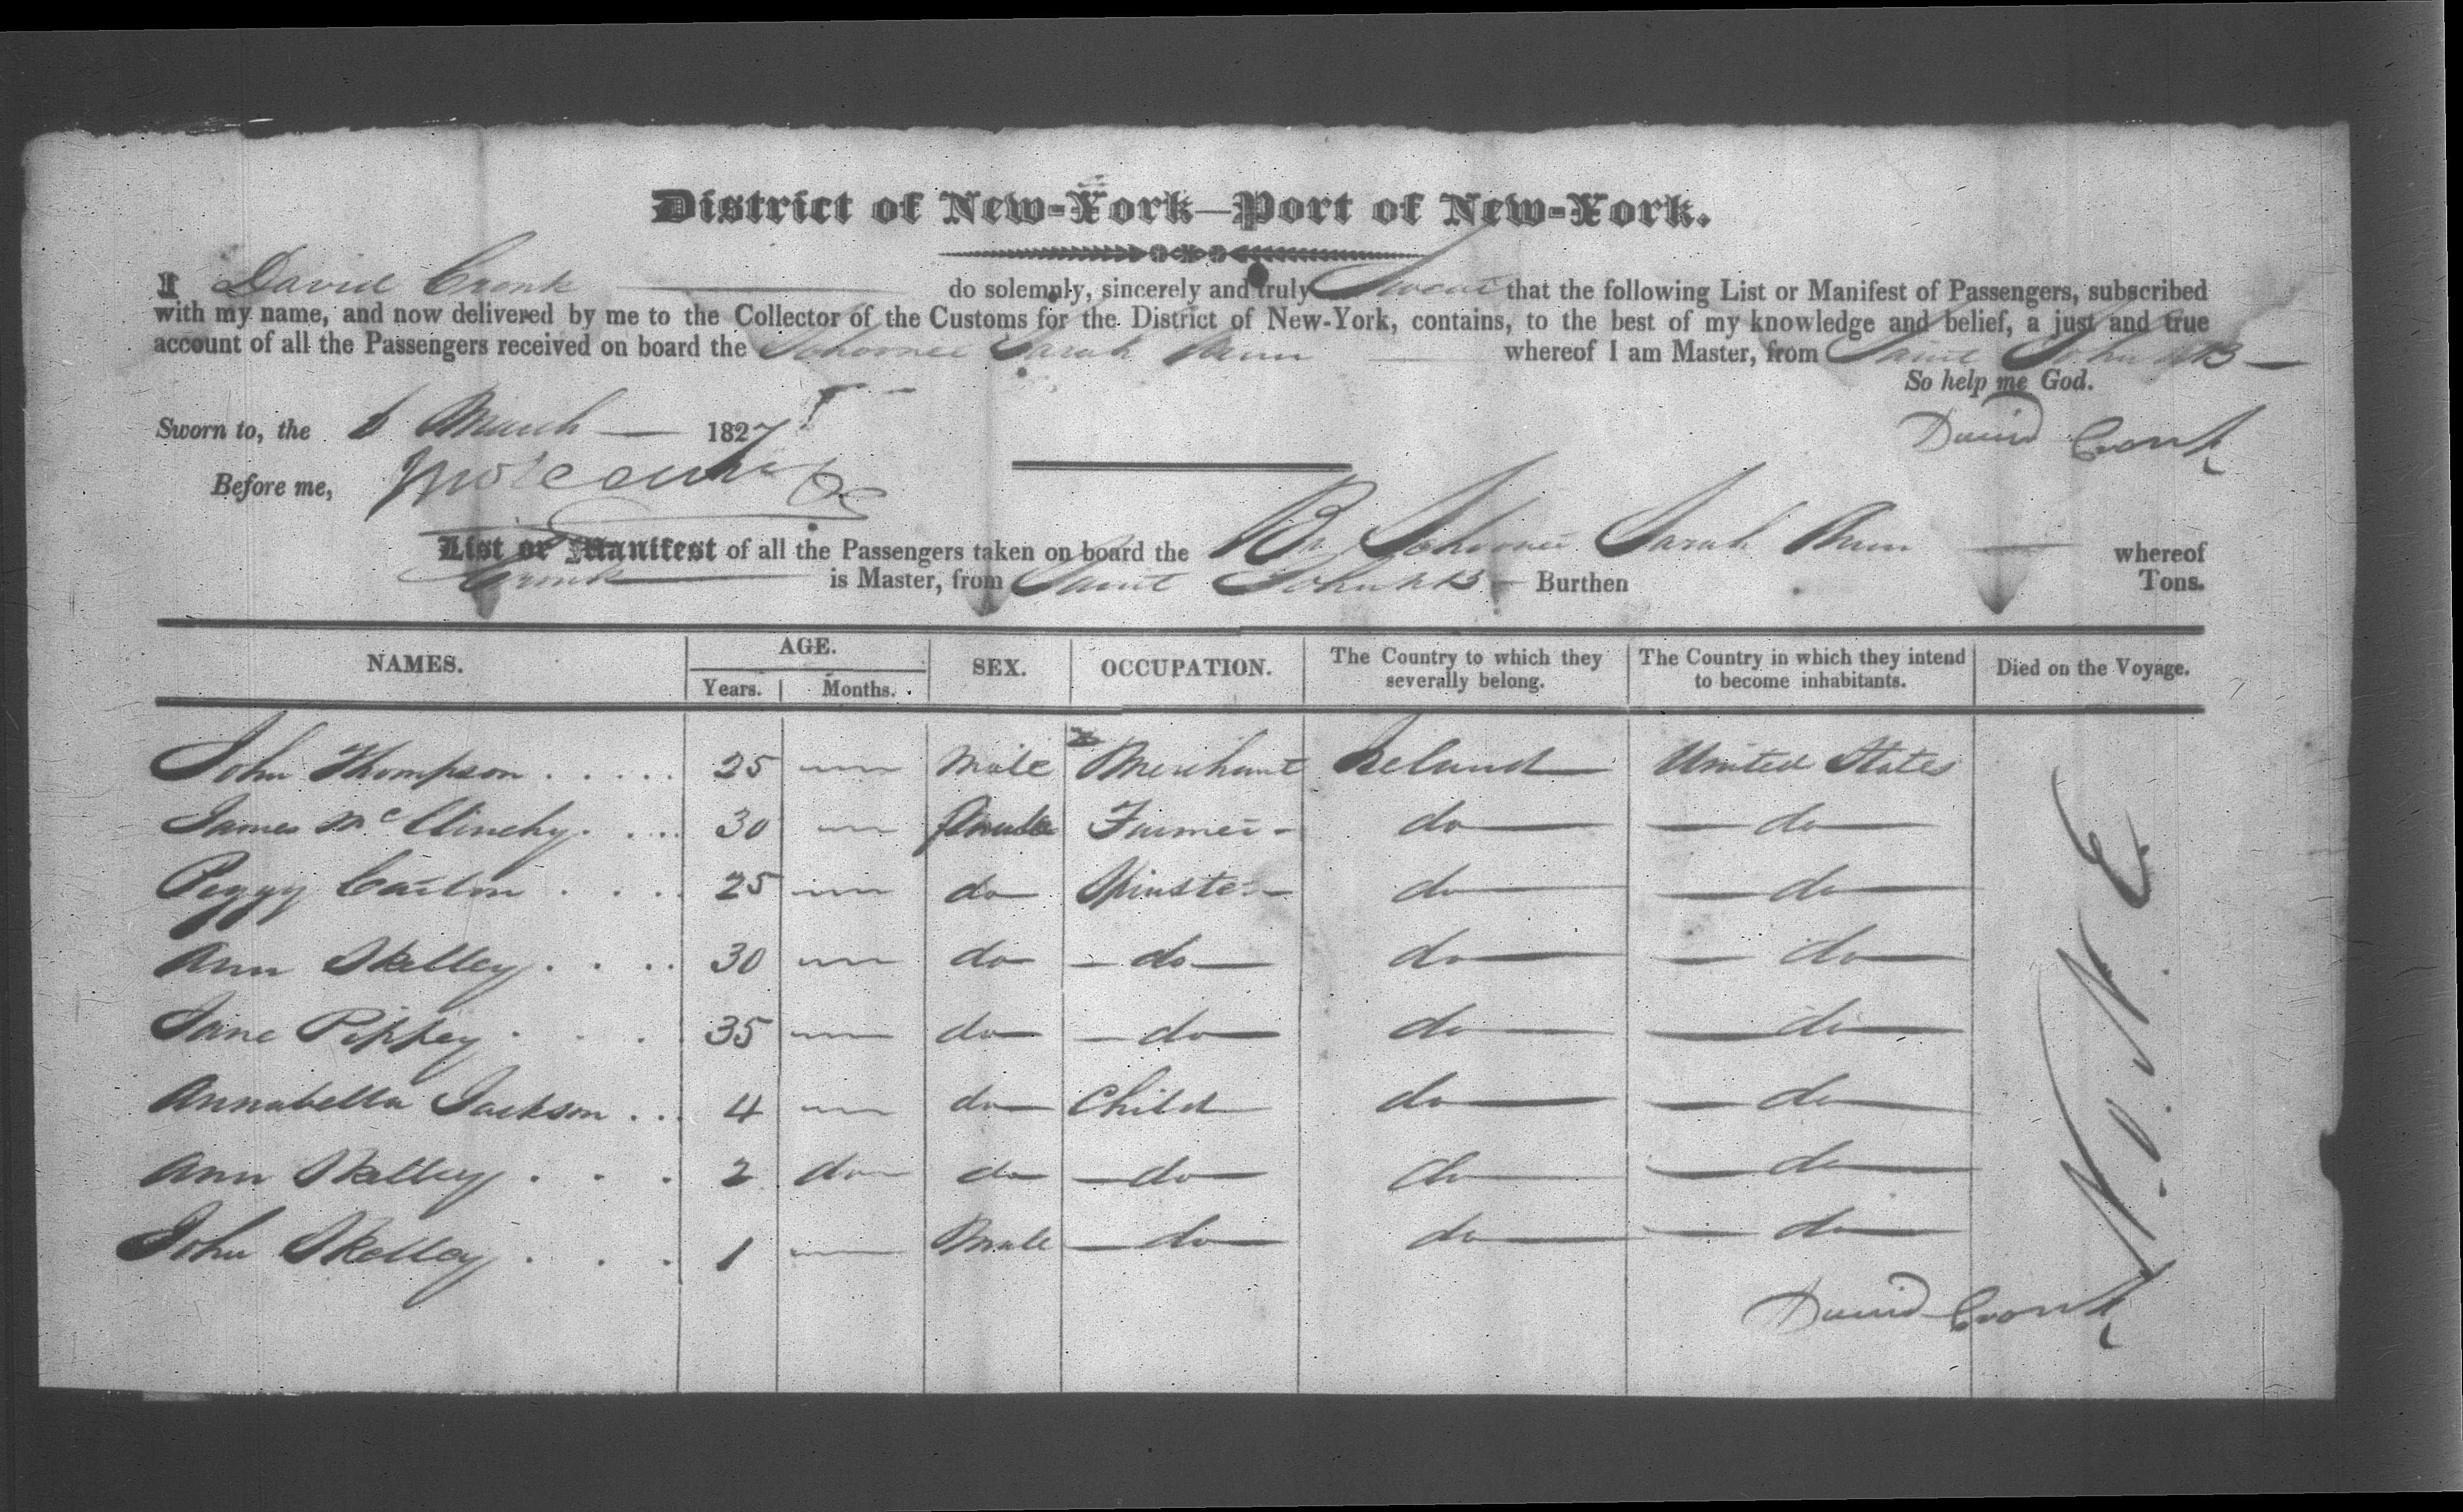 District of New-York—Port of New-York.
I David Cronk do solemnly, sincerely and truly Swear that the following List or Manifest of Passengers, subscribed
with my name, and now delivered by me to the Collector of the Customs for the District of New-York, contains, to the best of my knowledge and belief, a just and true
account of all the Passengers received on board the Schooner Sarah Ann whereof I am Master, from Saint John NB —
So help me God.
Sworn to, the 6 March — 1827
David Cronk
Before me,
List or Manifest of all the Passengers taken on board the Br Schooner Sarah Ann — whereof
Cronk — is Master, from Saint John NB — Burthen Tons.
NAMES. AGE. SEX. OCCUPATION. The Country to which they severally belong. The Country in which they intend to become inhabitants. Died on the Voyage.
Years. Months.
John Thompson . . . . . 25 — Male Merchant Ireland — United States
James McClinchy . . . . 30 — Farmer - do — — do —
Peggy . . . . 25 — do Spinster — do — — do —
Ann Skelley . . . . 30 — do — do — do — — do —
Jane Pippey . . . 35 — do — do — do — — do —
Annabella Jackson . . . 4 — do Child do — — do —
Ann Skelley . . . 2 do do — do — do — — do —
John Skelley . . . 1 — Male — do — do — — do —
N.O.N.E
David Cronk